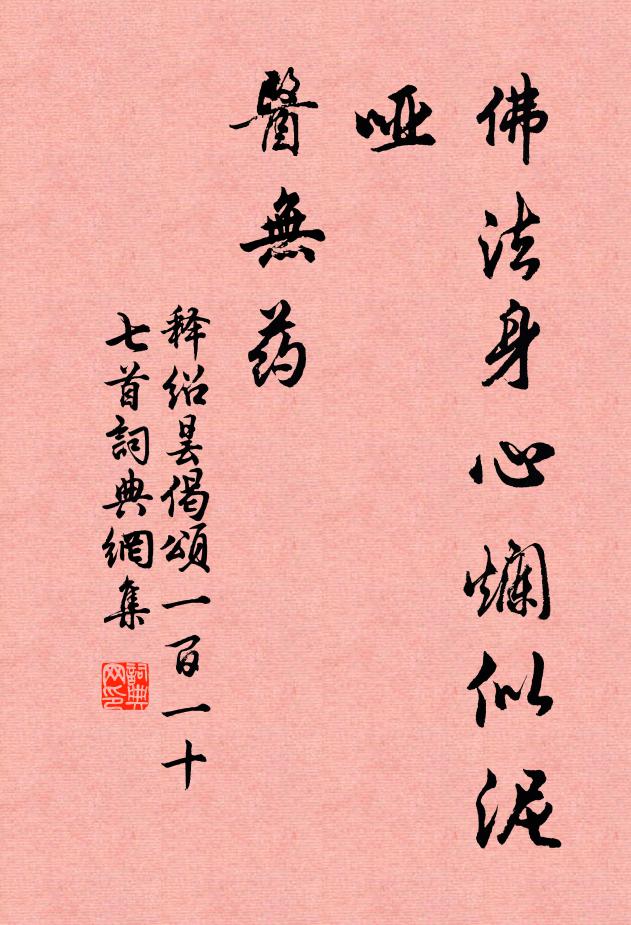 佛法身心爛似泥
啞
醫無药
释绍昙偈頌一百一十
七首詞典網集
詞典网印